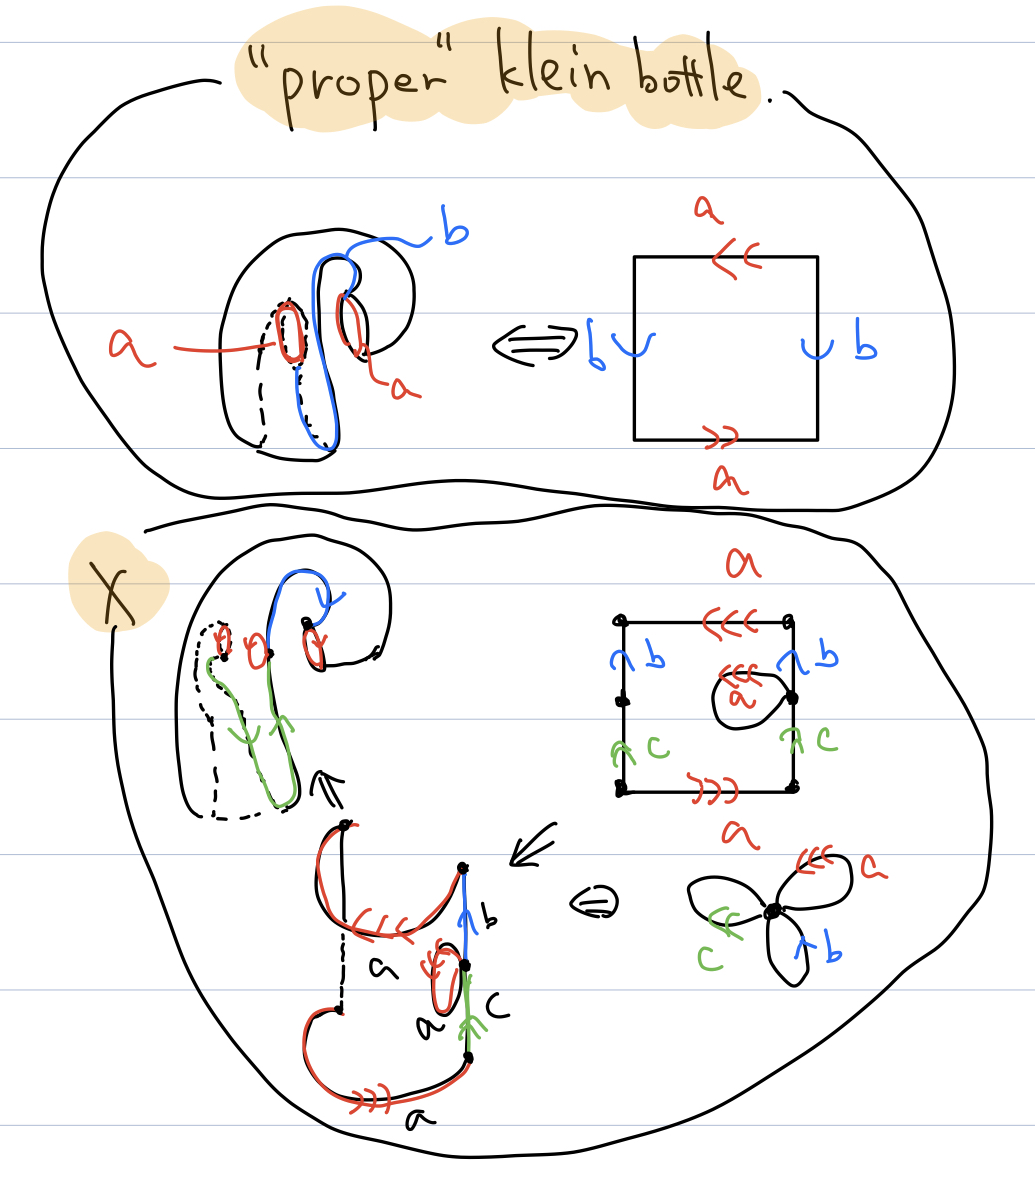 "proper" klein bottle.
b
a
a
a
b
b
a
X
a
b
b
a
c
c
a
b
a
c
a
a
a
c
b